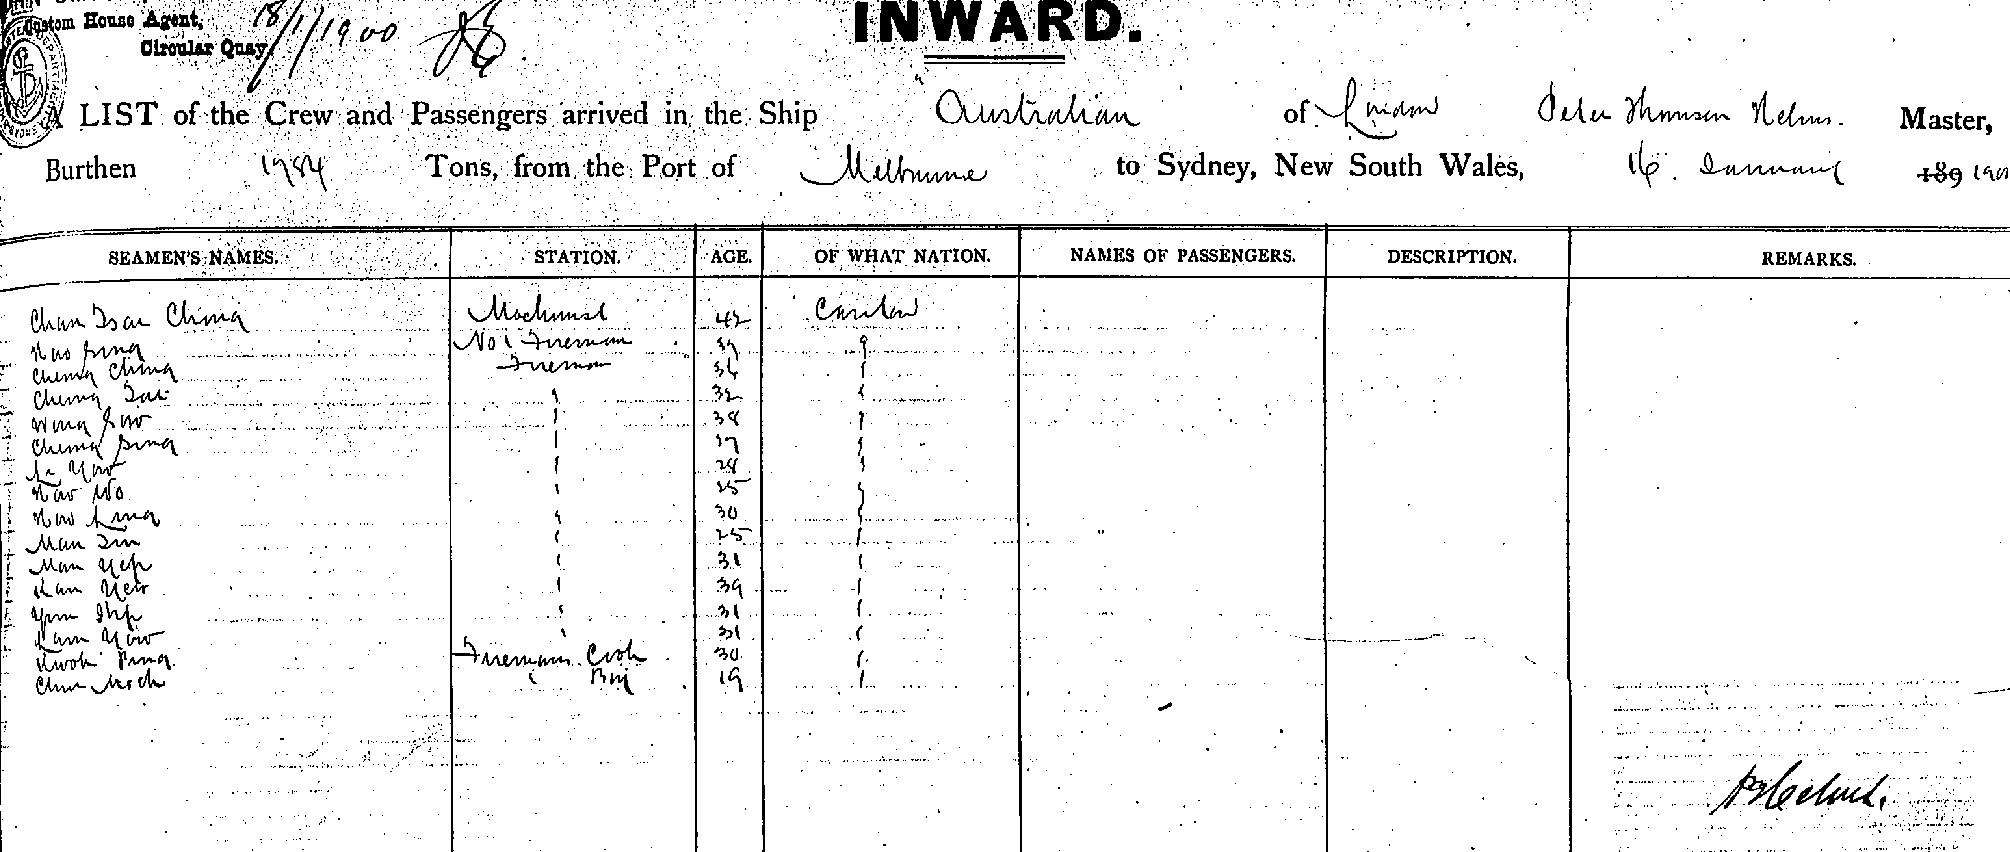 Custom House Agent,
Circular Quay
18/1/1900
INWARD.
A LIST of the Crew and Passengers arrived in the Ship "Australian of London Peter Thomson Helms. Master,
Burthen 1784 Tons, from the Port of Melbourne to Sydney, New South Wales, 16. January 189 1900
SEAMEN'S NAMES. STATION. AGE. OF WHAT NATION. NAMES OF PASSENGERS. DESCRIPTION. REMARKS.
Chan Tsai Ching Machinist 42 Canton
Sing No 1 Fireman 39 "
Cheng Ching Fireman 36 "
Cheng Tai " 32 "
Wong Sow " 38 "
Cheng Sing " 37 "
Yow " 28 "
Wo " 25 "
Ling " 30 "
Man " 25 "
Man Yep " 31 "
Kam Yew " 39 "
Yum Yip " 31 "
Kam Yow " 31 "
Kwok Ping Firemans Cook 30 "
" Boy 19 "